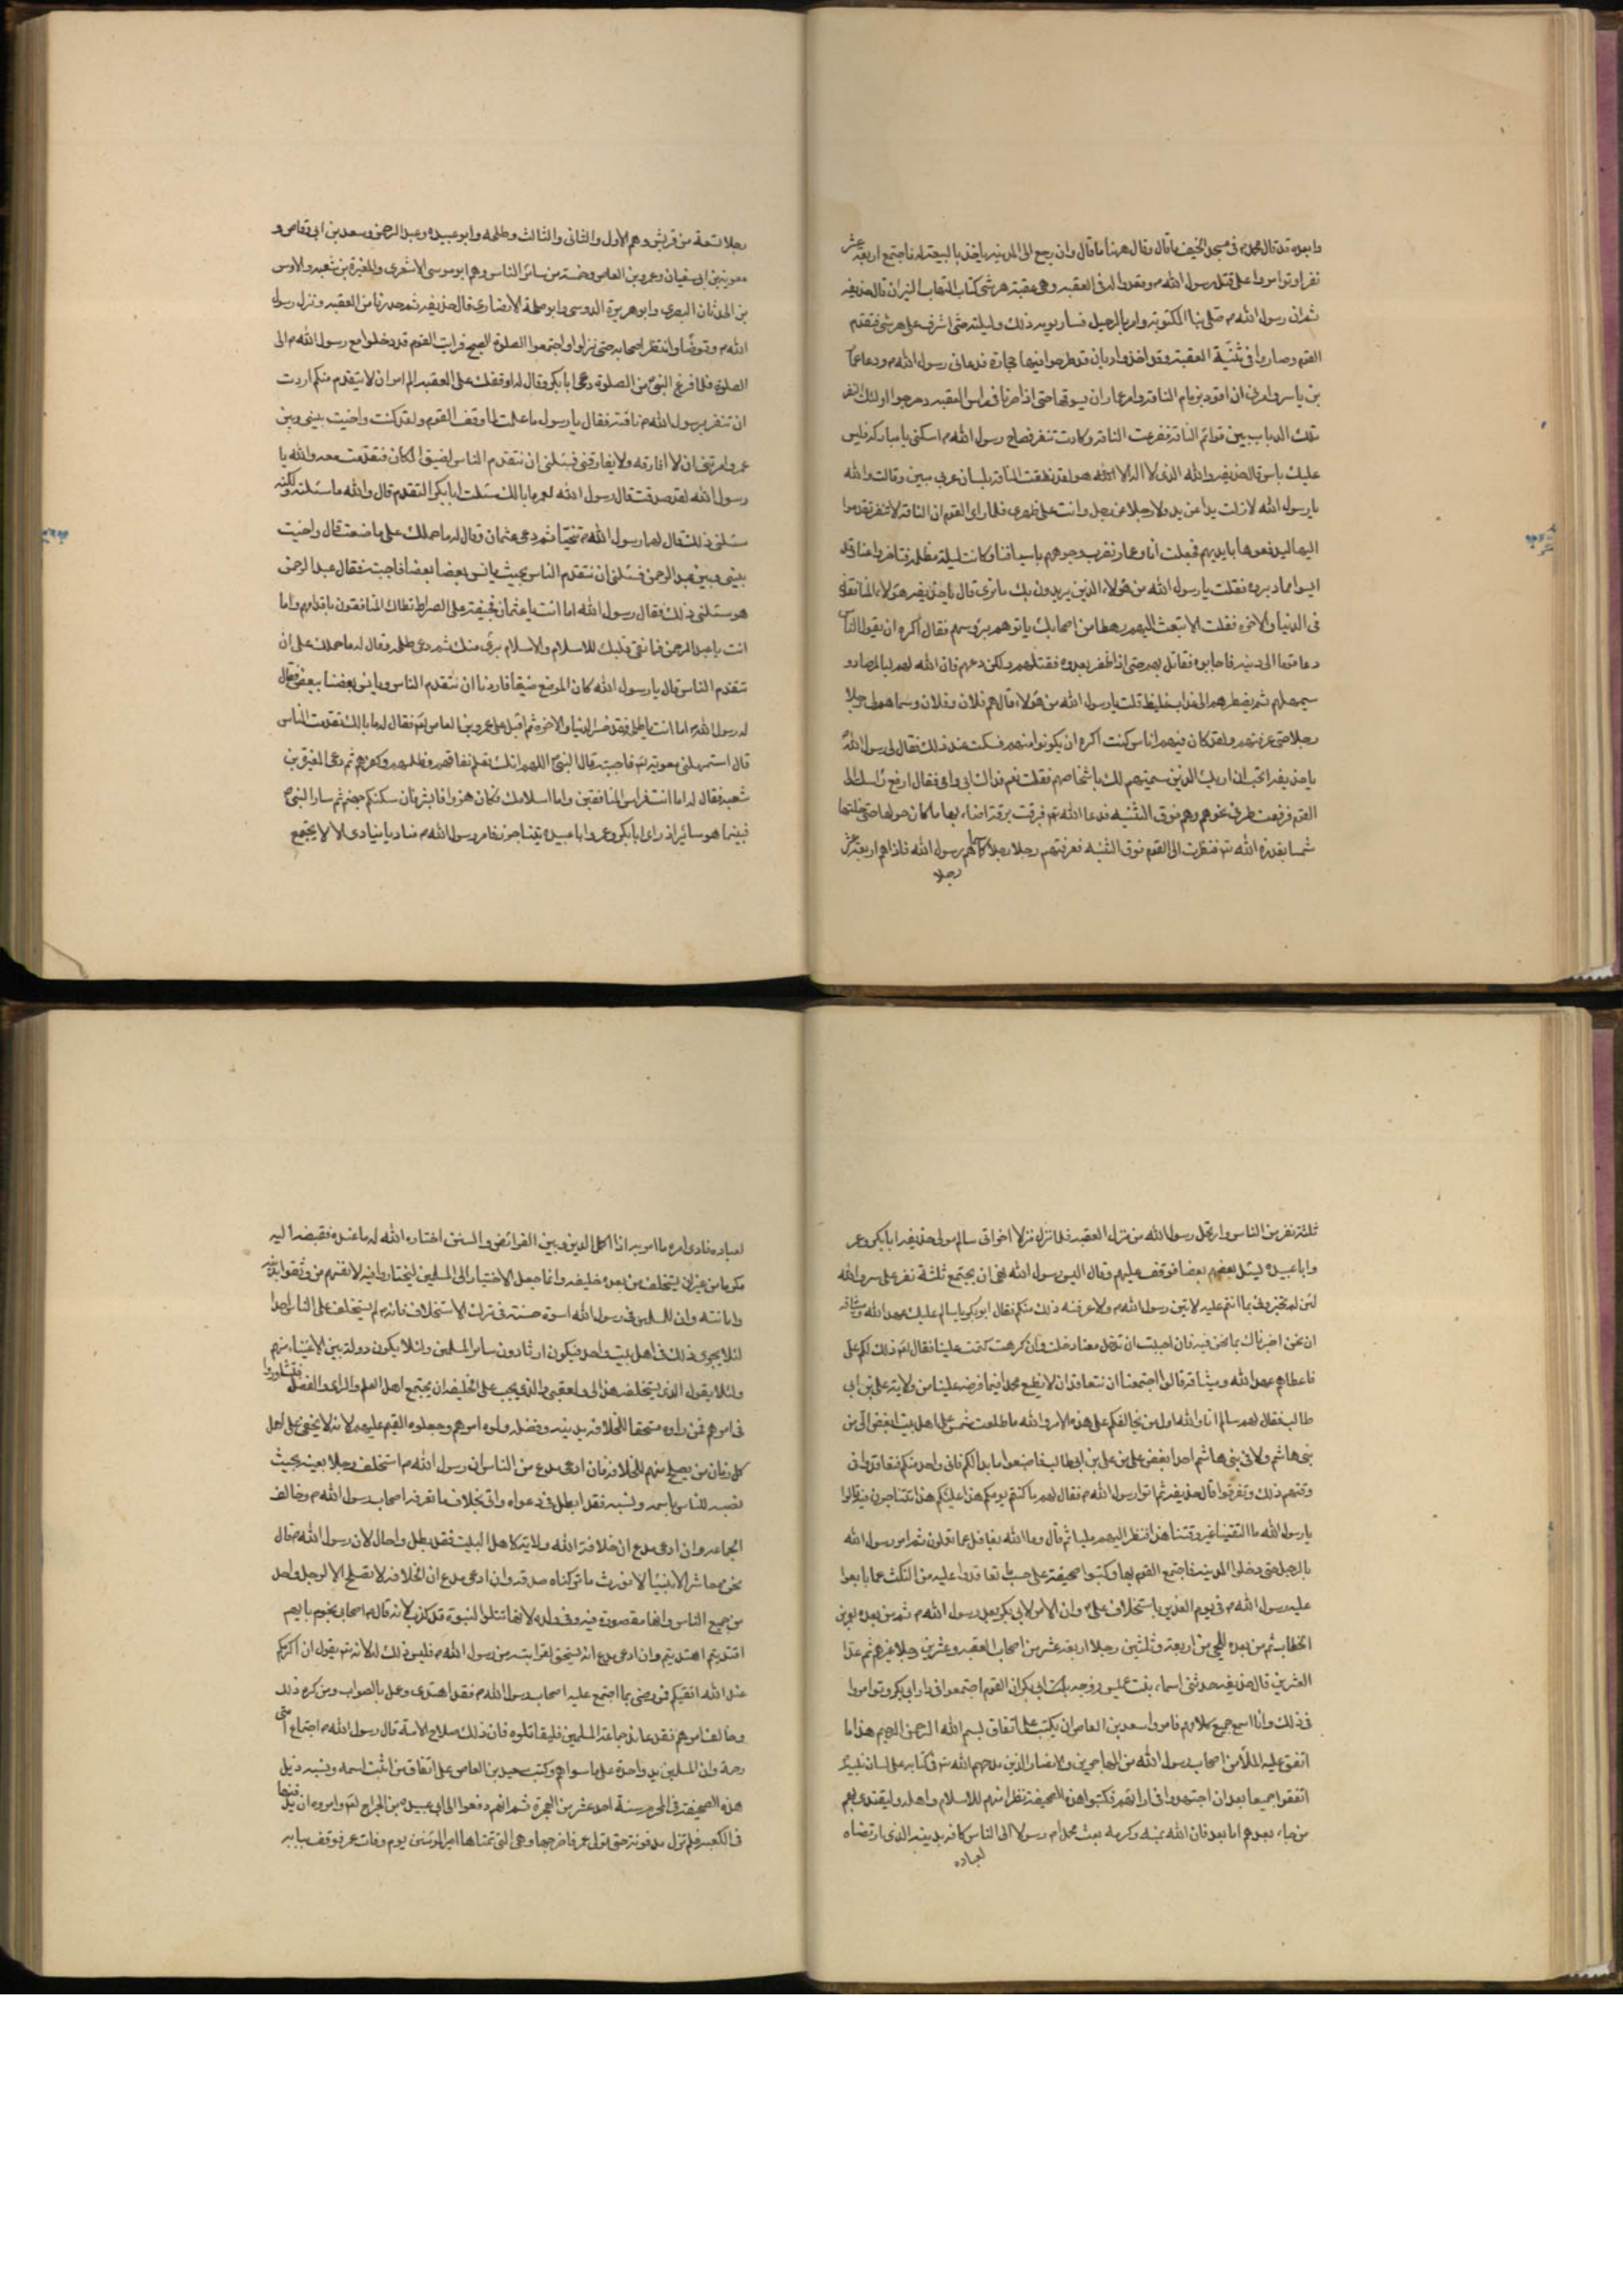 وابعده قد قال محمد م في مسجد الخيف ما قال وقال ههنا ما قال وان رجع الى المدينة ياخذ بالبيعة له فاجتمع اربعة عشر
نفرا وتوامروا على قتل رسول الله م وقعدوا له في العقبه وهي عقبة هرشى كتاب النيران قال حذيفه
ثم ان رسول الله م صلى بنا المكتوبة وامر بالرحيل فسار يومه ذلك وليلته حتى اشرف على هرشى فتقدم
القوم وصاروا في ثنيّة العقبة وقد اخذوا دبابا قد طرحوا فيها حجارة فدعانى رسول الله م ودعا عمار
بن ياسر وامرنى ان اقود بزمام الناقة وامر عمار ان يسوقها حتى اذا صرنا فى راس العقبه دحرجوا اولئك النفر
تلك الدباب بين قوائم الناقة ففزعت الناقة وكادت تنفر فصاح رسول الله م اسكنى يا مباركة فليس
عليك باس قال حذيفه والله الذى لا اله الا هو لقد نطقت الناقة بلسان عربى مبين وقالت والله
يا رسول الله لا زلت يدا عن يد ولا رجلا عن رجل وانت على ظهرى فلما راى القوم ان الناقة لا تنفر تقدموا
اليها ليدفعوها بايديهم فجعلت انا وعمار نضرب وجوههم باسيافنا وكانت ليلة مظلمة فتاخروا عنا وقد
ايسوا مما دبروه فقلت يا رسول الله من هؤلاء الذين يريدون بك ما ترى قال يا حذيفه هؤلاء المنافقون
فى الدنيا والاخرة فقلت الا تبعث اليهم رهطا من اصحابك ياتوهم برؤسهم فقال اكره ان يقول الناس
دعا قوما الى دينه فاجابوه فقاتل بهم حتى اذا ظفر بعدوه فقتلهم ولكن دعهم فان الله لهم بالمرصاد و
سيمهلهم ثم يضطرهم الى عذاب غليظ قلت يا رسول الله من هؤلاء قال هم فلان وفلان وسماهم لى رجلا
رجلا حتى عرفتهم ولقد كان فيهم اناس كنت اكره ان يكونوا منهم فسكت عند ذلك فقال لى رسول الله
يا حذيفه اتحب ان اريك الذين سميتهم لك باشخاصهم فقلت نعم فداك ابى وامى فقال ارفع راسك الى
القوم فرفعت طرفى نحوهم وهم فوق الثنيه فدعا الله فبرقت برقة اضاء بها ما كان حولها حتى خلتها
شمسا بقدرة الله فنظرت الى القوم فوق الثنيه فعرفتهم رجلا رجلا كما سماهم رسول الله فاذا هم اربعة عشر
رجلا
رجلا تسعة من قريش وهم الاول والثانى والثالث وطلحه وابو عبيده وعبد الرحمن وسعد بن ابى وقاص و
معوية بن ابى سفيان وعمرو بن العاص وخمسة من سائر الناس وهم ابو موسى الاشعرى والمغيرة بن شعبه والاوس
بن الحدثان البصرى وابو هريرة الدوسى وابو طلحة الانصارى قال حذيفه ثم حدرنا من العقبه ونزل رسول
الله م وتوضّا وانتظر اصحابه حتى نزلوا واجتمعوا الصلوة الصبح فرايت القوم قد دخلوا مع رسول الله م الى
الصلوة فلما فرغ النبى من الصلوة دعى ابا بكر وقال له اوقفك على العقبه الم امر ان لا يتقدم منكم اردت
ان تنفر برسول الله م ناقته فقال يا رسول ما علمت لما وقف القوم ولقد كنت واخيت بينى وبين
عمر وامرتنى ان لا افارقه ولا يفارقنى فسئلنى ان نتقدم الناس لضيق المكان فتقدمت معه والله يا
رسول الله لقد صدقت فقال رسول الله لعمر ما بالك سئلت ابا بكر التقدم قال والله ما سئلته ولكنه
سئلنى ذلك فقال لهما رسول الله م تنحّيا ثم دعى عثمان وقال له ما حملك على ما صنعت قال واخيت
بينى وبين عبد الرحمن فسئلنى ان نتقدم الناس بحيث يانس بعضا بعضا فاجبته فقال عبد الرحمن
هو سئلنى ذلك فقال رسول الله اما انت يا عثمان فجيفة على الصراط تطاك المنافقون باقدامهم واما
انت يا عبد الرحمن فما نقى قلبك للاسلام والاسلام برى منك ثم دعى طلحه وقال له ما حملك على ان
تتقدم الناس قال يا رسول الله كان الموضع ضيقا فاردنا ان نتقدم الناس ويانس بعضنا ببعض فقال
له رسول الله م اما انت يا طلحه فقد خسر الدنيا والاخرة ثم اقبل على عمرو بن العاص فقال له ما بالك تقدمت الناس
قال استمهلنى معوية فاجبته قال النبىّ اللهم انك تعلم نفاقهم وظلمهم وكفرهم ثم دعى المغيرة بن
شعبه فقال له اما انت فراس المنافقين واما اسلامك فكان هزوا فابشر فان سكنكم جهنم ثم سار النبىّ
فبينما هو سائر اذ راى ابا بكر وعمر وابا عبيده يتناجون فامر رسول الله م مناديا ينادى الا لا يجتمع
ثلثة نفر من الناس وارتحل رسول الله من منزل العقبه فلما نزل منزلا اخر اتى سالم مولى حذيفه ابا بكر وعمر
وابا عبيده ليسئل بعضهم بعضا فوقف عليهم وقال اليس رسول الله نهى ان يجتمع ثلثة نفر على سر والله
لئن لم تخبرونى بما انتم عليه لاتين رسول الله م ولاعرفنه ذلك منكم فقال ابو بكر يا سالم عليك عهد الله وميثاقه
ان نحن اخبرناك بما نحن فيه فان احببت ان تدخل معنا دخلت وان كرهت كتمت علينا فقال ذلك لكم على
فاعطاهم عهد الله وميثاقه قالوا اجتمعنا ان نتعاقد ان لا نطيع محمدا فيما فرضه علينا من ولاية على بن ابى
طالب فقال لهم سالم انا والله اول من يخالفكم على هذه الامر والله ما طلعت شمس على اهل بيت ابغض الى من
بنى هاشم ولا فى بنى هاشم احدا بغض على من على بن ابى طالب فاصنعوا ما بدا لكم فانى واحد منكم فتعاقدوا فى
وقتهم ذلك وتفرقوا قال حذيفه ثم اتوا رسول الله م فقال لهم ما كنتم يومكم هذا تتناجون فقالوا
يا رسول الله ما التقينا غير وقتنا هذا فنظر اليهم مليا ثم قال وما الله بغافل عما تعملون ثم امر رسول الله
بالرحيل حتى دخلوا المدينه فاجتمع القوم بها وكتبوا صحيفة على حسب ما تعاقدوا عليه من النكث عما بايعوا
عليه رسول الله م فى يوم الغدير باستخلاف علىّ وان الامر لابى بكر بعد رسول الله م ثم من بعده لعمر بن
الخطاب ثم من بعده للحى من اربعة وثلثين رجلا اربعة عشر من اصحاب العقبه وعشرين رجلا غيرهم ثم عدّا
العشرين قال حذيفه حدثنى اسماء بنت عميس زوجه ابى بكر ان القوم اجتمعوا فى دار ابى بكر وتوامروا
فى ذلك وانا اسمع جميع كلامهم فامروا سعد بن العاص ان يكتب على اتفاق بسم الله الرحمن الرحيم هذا ما
اتفق عليه الملأ من اصحاب رسول الله من المهاجرين والانصار الذين مدحهم الله فى كتابه على لسان نبيه
اتفقوا جميعا بعد ان اجتهدوا فى ارائهم فكتبوا هذه الصحيفة نظرا منهم للاسلام واهله وليقتدى بهم
من جاء بعدهم اما بعد فان الله بمنه وكرمه بعث محمدا م رسولا الى الناس كافه بدينه الذى ارتضاه
لعباده
لعباده فادى امره ما امر به اذا اكمل الدين وبين الفرائض والسنن اختاره الله له ما عنده فقبضه اليه
مكرما من غير ان يستخلف من بعده خليفه وانما جعل الاختيار الى المسلمين ليختاروا فيه لانفسهم من وثقوا برايه
وامانته وان للمسلمين فى رسول الله اسوة حسنة فى ترك الاستخلاف فانه لم يستخلف على الناس احدا
لئلا يجرى ذلك فى اهل بيت واحد فيكون ارثا دون سائر المسلمين ولئلا يكون دولة بين الاغنياء منهم
ولئلا يقول الذى يستخلف هذا لى ولعقبى والذى يجب على الخليفه ان يجتمع اهل العلم والراى والفضل فتشاوروا
فى امرهم فمن راوه مستحقا للخلافة بدينه وفضله ولوه امرهم وجعلوه القيم عليهم لانه لا يخفى على اهل
كل زمان من يصلح منهم للخلافة فان ادعى مدع من الناس ان رسول الله م استخلف رجلا بعينه بحيث
نصبه للناس باسمه ونسبه فقد ابطل فى دعواه واتى بخلاف ما تعرفه اصحاب رسول الله م وخالف
الجماعه وان ادعى مدع ان خلافة الله ولايته لاهل البيت فقد بطل واحال لان رسول الله م قال
نحن معاشر الانبياء لا نورث ما تركناه صدقة وان ادعى مدع ان الخلافة لا تصلح الا لرجل واحد
من جميع الناس وانها مقصورة فيه وفى ولده لانها تتلوا النبوة قد كذب لانه قال م اصحابى نجوم بايهم
اقتديتم اهتديتم وان ادعى مدع انه يستحق لقرابته من رسول الله م فليس ذلك له لانه يقول ان اكرمكم
عند الله اتقيكم فمن رضى بما اجتمع عليه اصحاب رسول الله م فقد اهتدى وعمل بالصواب ومن كره ذلك
وخالف امرهم فقد عاند جماعة المسلمين فليقاتلوه فان ذلك صلاح الامة قال رسول الله م اجتماع امتى
رحمة وان المسلمين يد واحدة على ما سواهم وكتب سعيد بن العاص على اتفاق من اثبت اسمه ونسبه ذيل
هذه الصحيفة فى المحرم سنة احد عشر من الهجرة ثم انهم دفعوا الى ابى عبيده بن الجراح وامروه ان يدفنها
فى الكعبه فلم تزل مدفونة حتى تولى عمر فاخرجها وهى التى تمناها امير المؤمنين يوم وفات عمر فوقف بابه